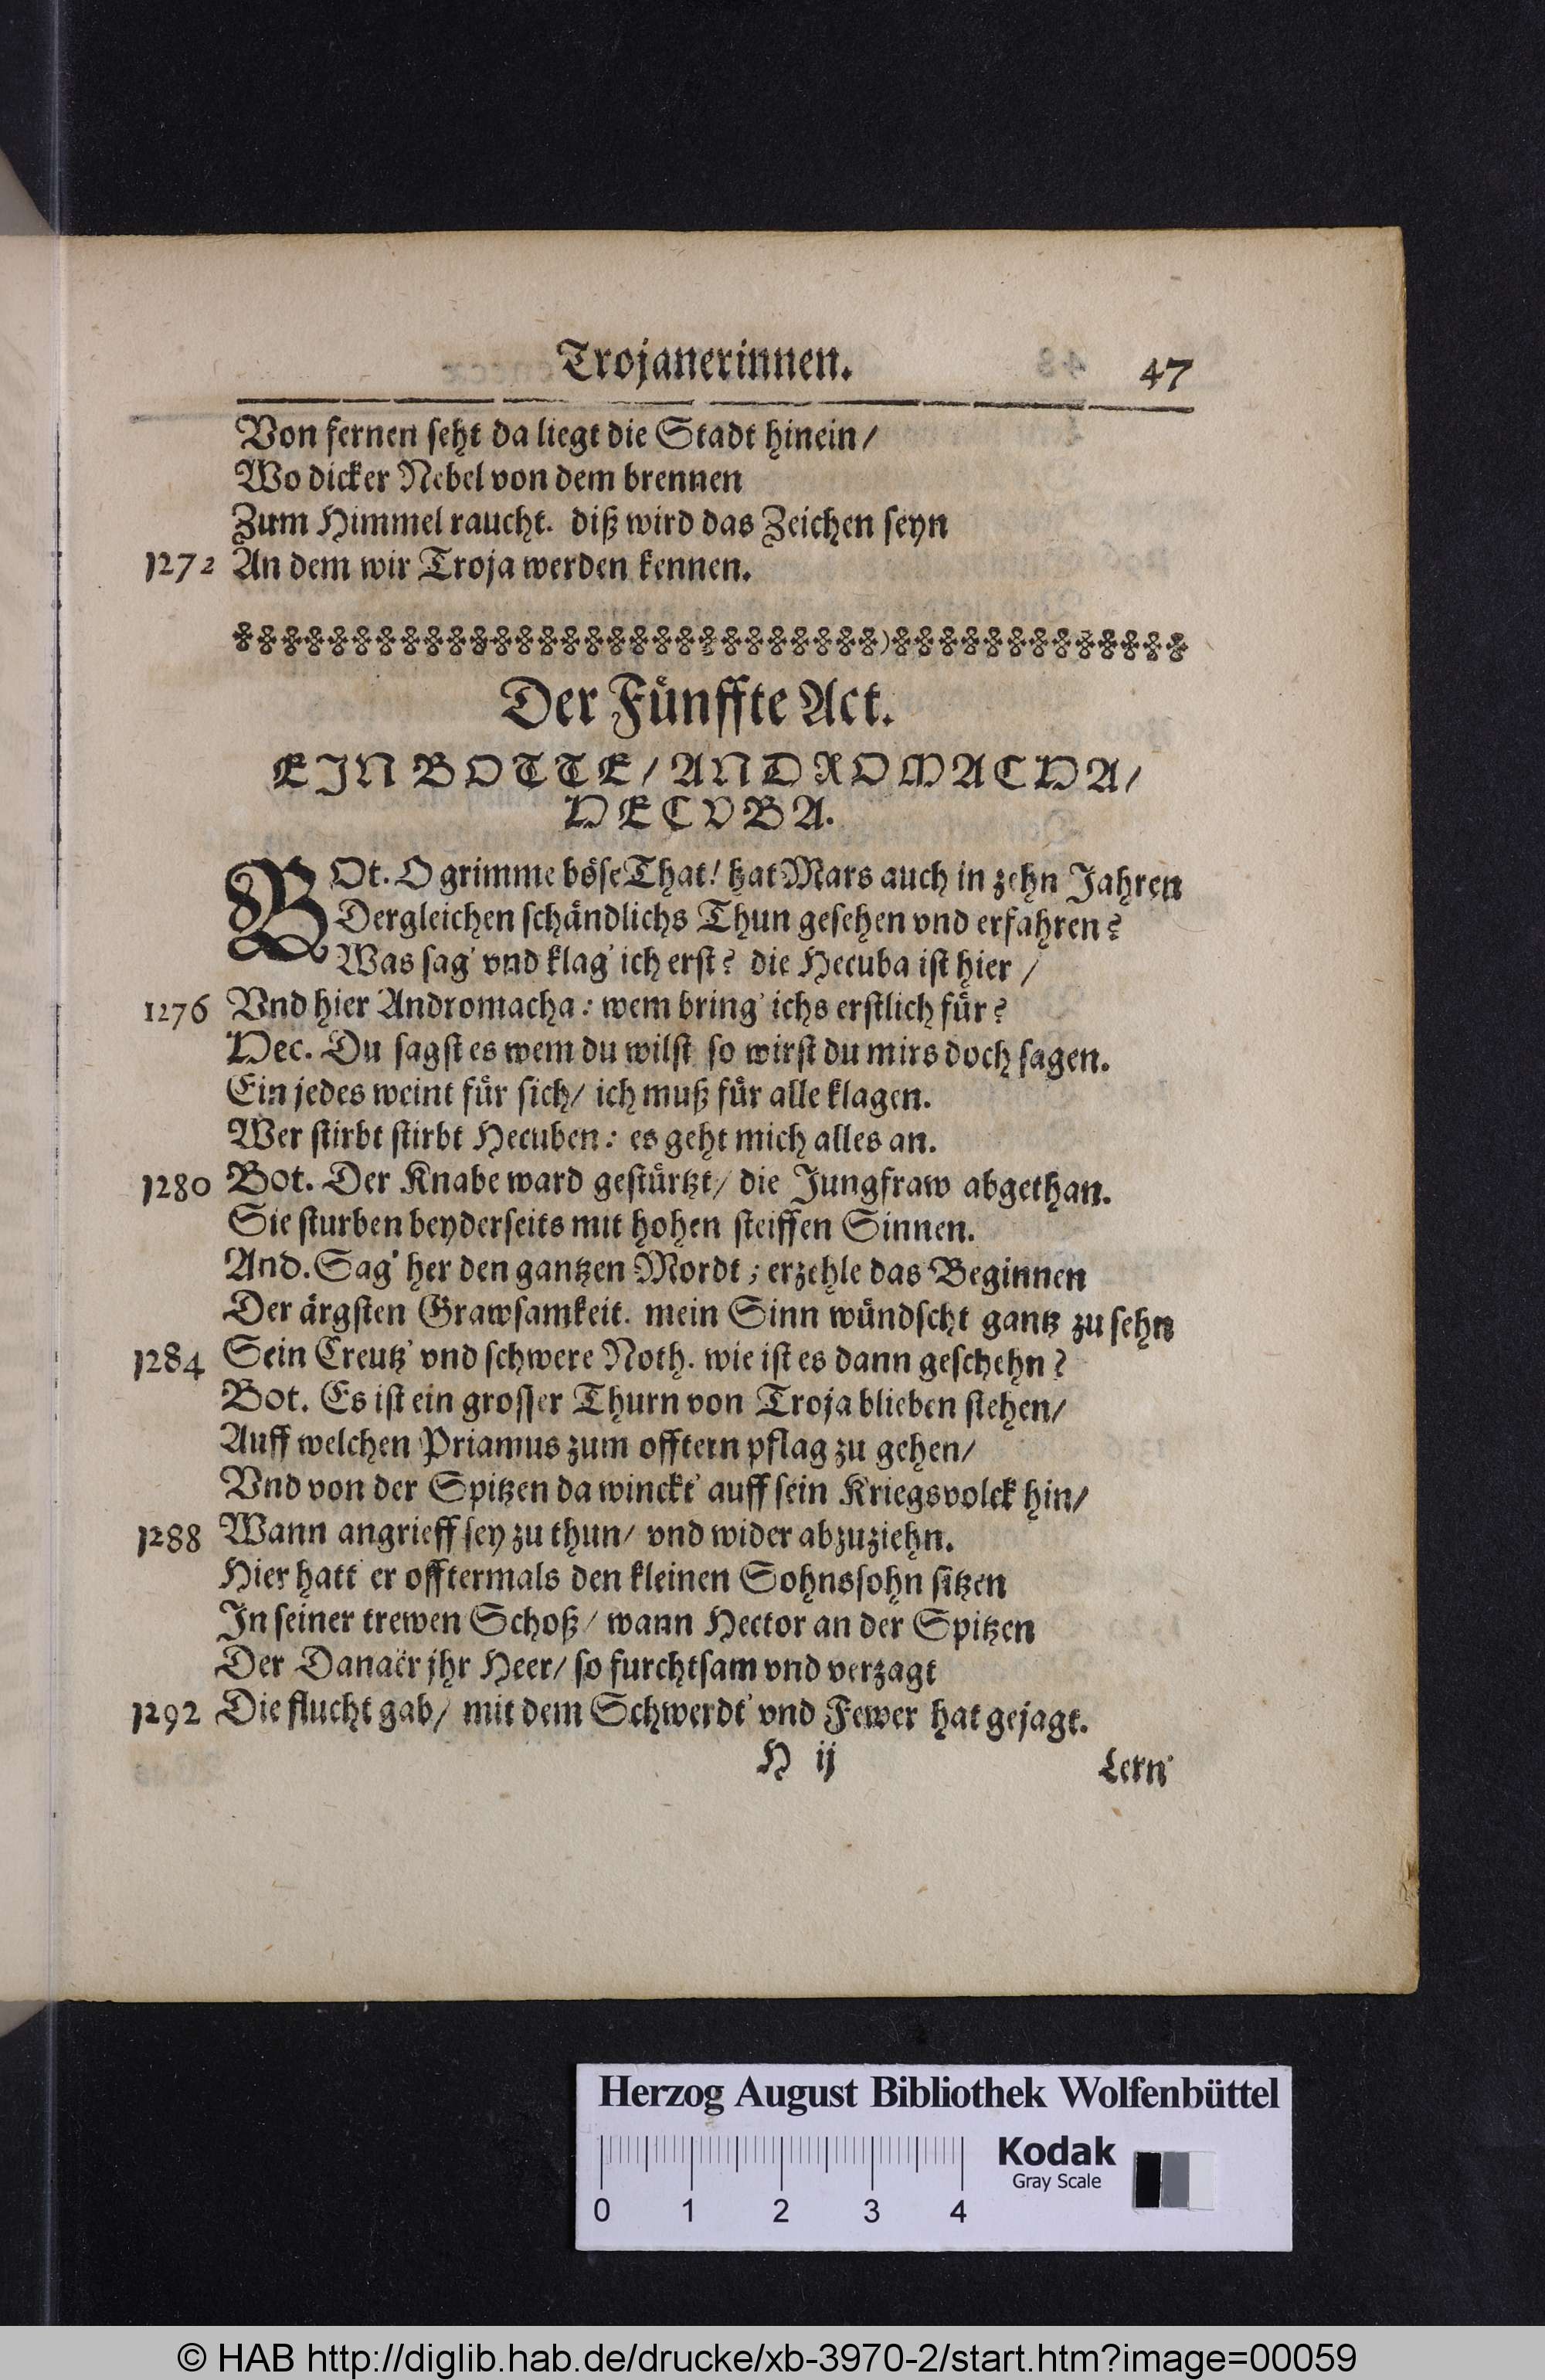 Trojanerinnen. 47
Von fernen seht da liegt die Stadt hinein/
Wo dicker Nebel von dem brennen
Zum Himmel raucht. diß wird das Zeichen seyn
1272 An dem wir Troja werden kennen.
Der Fünffte Act.
EIN BOTTE/ ANDROMACHA/
HECVBA.
BOt. O grimme böse That! hat Mars auch in zehn Jahren
Dergleichen schändlichs Thun gesehen vnd erfahren?
Was sag' vnd klag' ich erst? die Hecuba ist hier/
1276 Vnd hier Andromacha: wem bring' ichs erstlich für?
Hec. Du sagst es wem du wilst so wirst du mirs doch sagen.
Ein jedes weint für sich/ ich muß für alle klagen.
Wer stirbt stirbt Hecuben: es geht mich alles an.
1280 Bot. Der Knabe ward gestürtzt/ die Jungfraw abgethan.
Sie sturben beyderseits mit hohen steiffen Sinnen.
And. Sag' her den gantzen Mordt; erzehle das Beginnen
Der ärgsten Grawsamkeit. mein Sinn wündscht gantz zu sehn
1284 Sein Creutz' vnd schwere Noth. wie ist es dann geschehn?
Bot. Es ist ein grosser Thurn von Troja blieben stehen/
Auff welchen Priamus zum offtern pflag zu gehen/
Vnd von der Spitzen da winckt' auff sein Kriegsvolck hin/
1288 Wann angrieff sey zu thun/ vnd wider abzuziehn.
Hier hatt' er offtermals den kleinen Sohnssohn sitzen
In seiner trewen Schoß/ wann Hector an der Spitzen
Der Danaër jhr Heer/ so furchtsam vnd verzagt
1292 Die flucht gab/ mit dem Schwerdt' vnd Fewer hat gejagt.
H ij Lern'
Herzog August Bibliothek Wolfenbüttel
Kodak
Gray Scale
0 1 2 3 4
© HAB http://diglib.hab.de/drucke/xb-3970-2/start.htm?image=00059